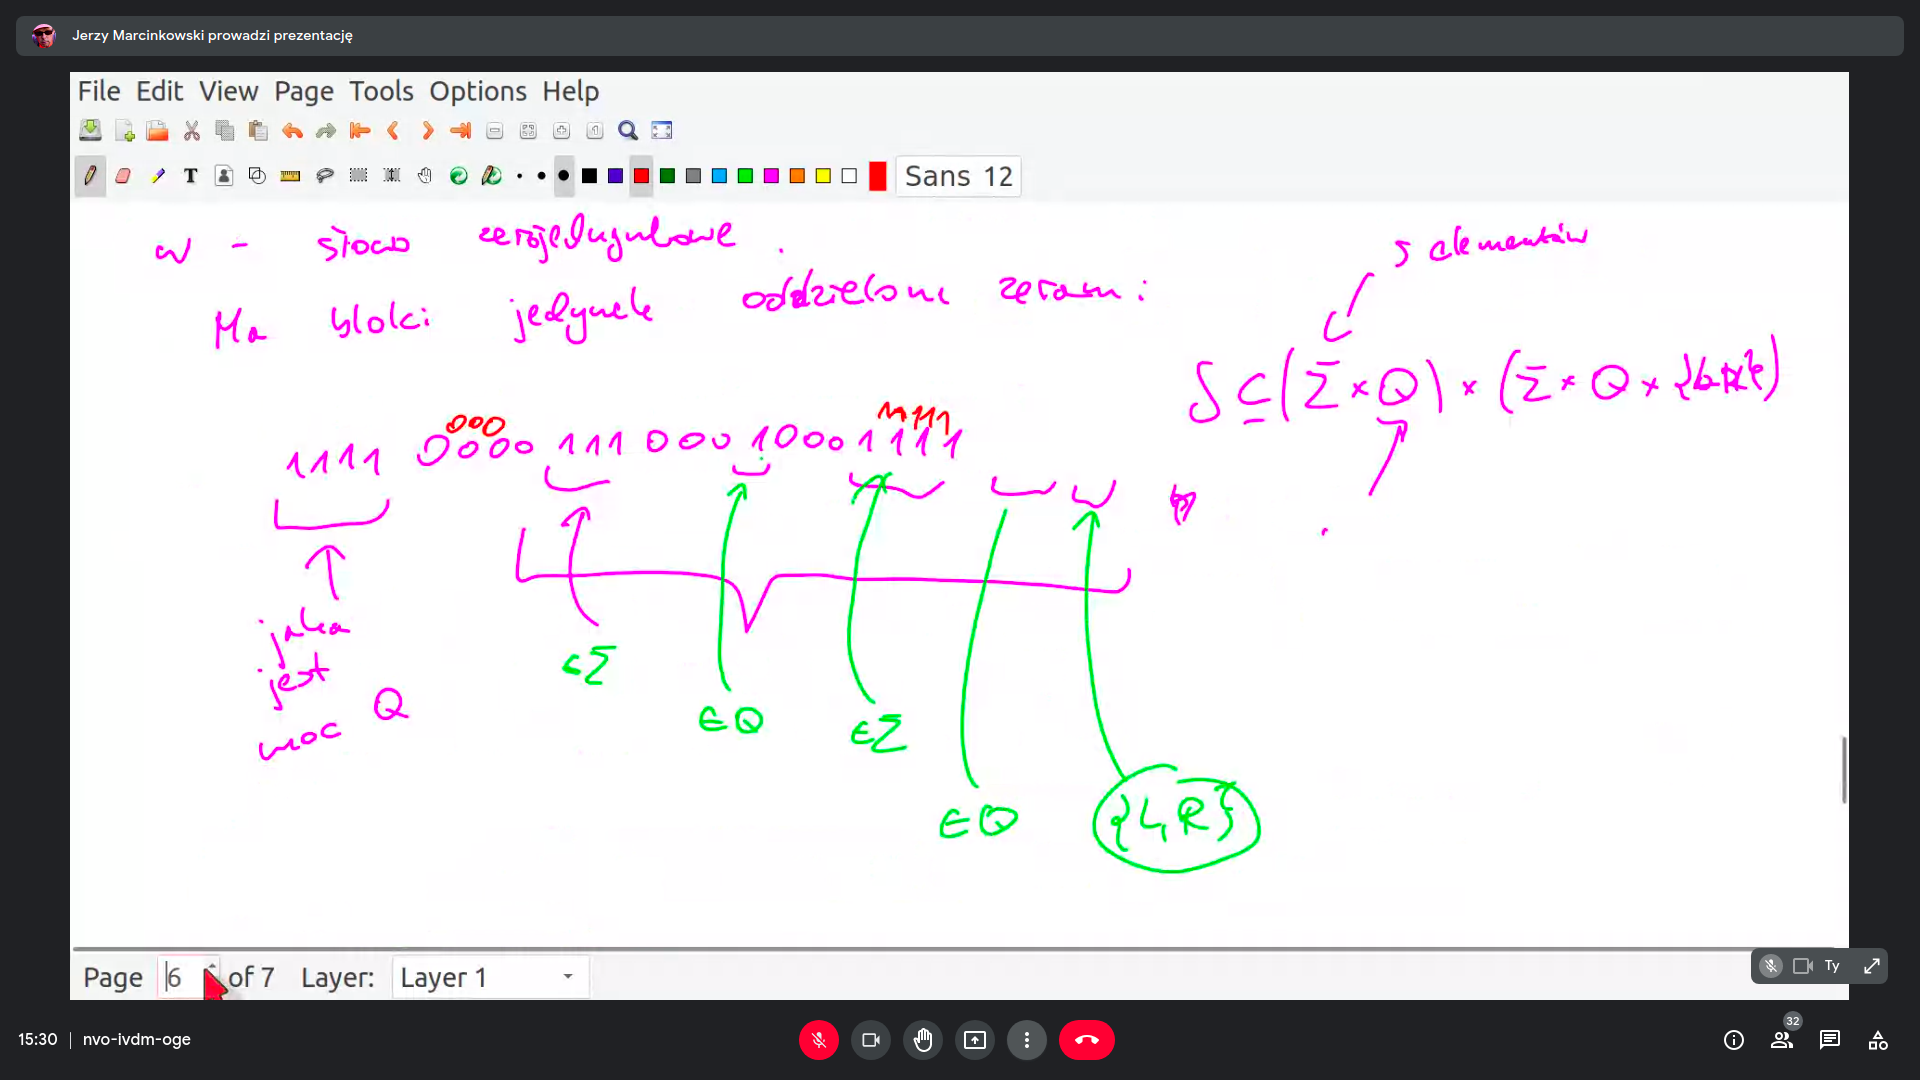 Jerzy Marcinkowski prowadzi prezentację
File Edit View Page Tools Options Help
Sans 12
w - słowo zerojedynkowe.
5 elementów
Ma bloki jedynek oddzielone zerami:
δ ⊆ (Σ × Q) × (Σ × Q ×
000 1111
1111 00000 111 000 1000 1111
jaka
jest
moc Q
∈Σ
∈Q
∈Σ
∈Q
{L,R}
Page 6 of 7 Layer: Layer 1
Ty
15:30 | nvo-ivdm-oge
32